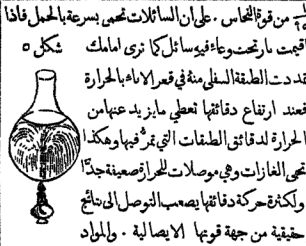 من قوة النحاس . على ان السائلات تحمى بسرعة بالحمل فاذا
اقيمت نار تحت وعاء فيه سائل كما ترى امامك
شكل ٥
تمددت الطبقة السفلى منه في قعر الاناء بالحرارة
فعند ارتفاع دقائقها تعطي ما يزيد عنها من
الحرارة لدقائق الطبقات التي تمرّ فيها وهكذا
تحمى الغازات وهي موصلات للحرارة ضعيفة جدًّا
ولكثرة حركة دقائقها يصعب التوصل الى نتائج
حقيقية من جهة قوتها الايصالية . والمواد